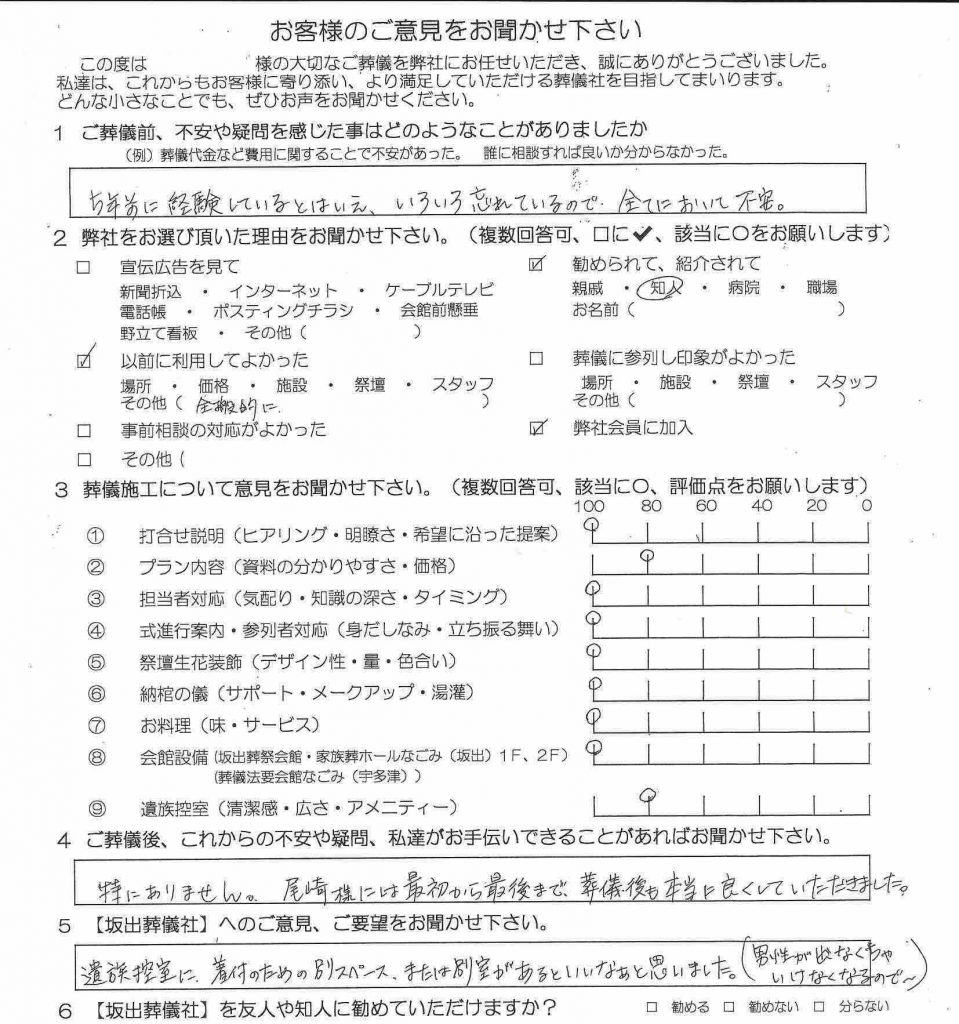 お客様のご意見をお聞かせ下さい
この度は 様の大切なご葬儀を弊社にお任せいただき、誠にありがとうございました。
私達は、これからもお客様に寄り添い、より満足していただける葬儀社を目指してまいります。
どんな小さなことでも、ぜひお声をお聞かせください。
1 ご葬儀前、不安や疑問を感じた事はどのようなことがありましたか
（例）葬儀代金など費用に関することで不安があった。 誰に相談すれば良いか分からなかった。
5年前に経験しているとはいえ、いろいろ忘れているので、全てにおいて不安。
2 弊社をお選び頂いた理由をお聞かせ下さい。（複数回答可、□に✔、該当に○をお願いします）
□ 宣伝広告を見て
新聞折込 ・ インターネット ・ ケーブルテレビ
電話帳 ・ ポスティングチラシ ・ 会館前懸垂
野立て看板 ・ その他（ ）
☑ 勧められて、紹介されて
親戚 ・ 知人 ・ 病院 ・ 職場
お名前（ ）
☑ 以前に利用してよかった
場所 ・ 価格 ・ 施設 ・ 祭壇 ・ スタッフ
その他（ 全搬的に. ）
□ 葬儀に参列し印象がよかった
場所 ・ 施設 ・ 祭壇 ・ スタッフ
その他（ ）
□ 事前相談の対応がよかった
☑ 弊社会員に加入
□ その他（
3 葬儀施工について意見をお聞かせ下さい。（複数回答可、該当に○、評価点をお願いします）
100 80 60 40 20 0
① 打合せ説明（ヒアリング・明瞭さ・希望に沿った提案）
② プラン内容（資料の分かりやすさ・価格）
③ 担当者対応（気配り・知識の深さ・タイミング）
④ 式進行案内・参列者対応（身だしなみ・立ち振る舞い）
⑤ 祭壇生花装飾（デザイン性・量・色合い）
⑥ 納棺の儀（サポート・メークアップ・湯灌）
⑦ お料理（味・サービス）
⑧ 会館設備（坂出葬祭会館・家族葬ホールなごみ（坂出）１F、２F）
（葬儀法要会館なごみ（宇多津））
⑨ 遺族控室（清潔感・広さ・アメニティー）
4 ご葬儀後、これからの不安や疑問、私達がお手伝いできることがあればお聞かせ下さい。
特にありません。尾崎様には最初から最後まで、葬儀後も本当に良くしていただきました。
5 【坂出葬儀社】へのご意見、ご要望をお聞かせ下さい。
遺族控室に、着付のための別スペース、または別室があるといいなあと思いました。（男性が出なくちゃ
いけなくなるので～）
6 【坂出葬儀社】を友人や知人に勧めていただけますか？ □ 勧める □ 勧めない □ 分らない